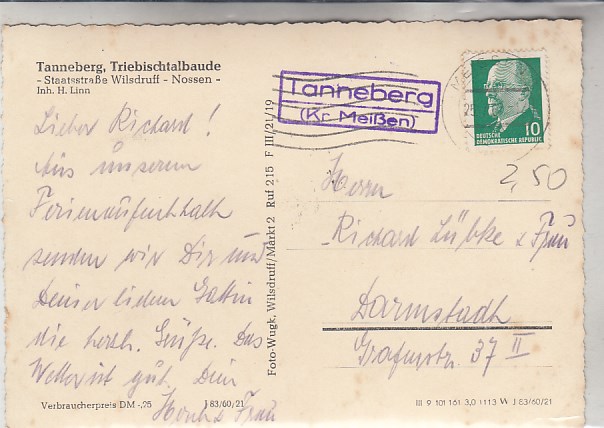 Tanneberg, Triebischtalbaude
- Staatsstraße Wilsdruff - Nossen -
Inh. H. Linn
Lieber Richard!
Aus unserem
Ferienaufenthalt
senden wir Dir und
Deiner lieben Gattin
die herzl. Grüße. Das
Wetter ist gut. Dein
u. Frau
Verbraucherpreis DM -,25 J 83/60/21
Foto-Wugk, Wilsdruff/Markt 2 Ruf 215 F III/21/19
Tanneberg
(Kr. Meißen)
DEUTSCHE
DEMOKRATISCHE REPUBLIK
10
2,50
Herrn
Richard Lübke u. Frau
Darmstadt
37 II
III 9 101 161 3,0 1113 W J 83/60/21